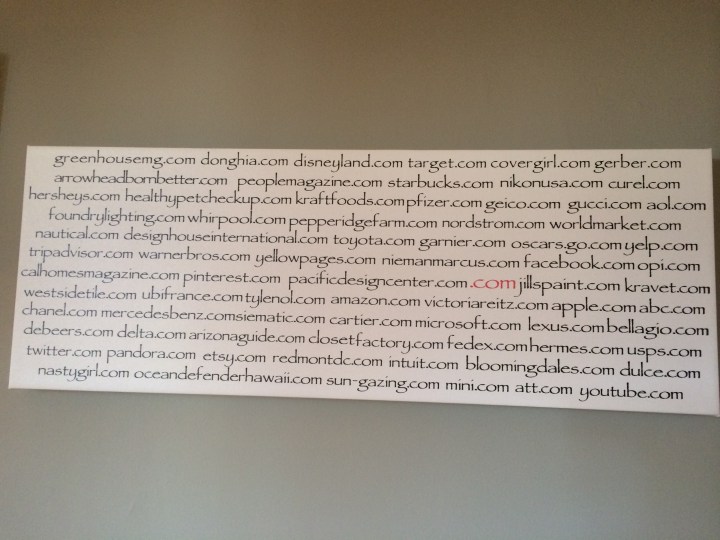 greenhousemg.com donghia.com disneyland.com target.com covergirl.com gerber.com
arrowheadbornbetter.com peoplemagazine.com starbucks.com nikonusa.com curel.com
hersheys.com healthypetcheckup.com kraftfoods.com pfizer.com geico.com gucci.com aol.com
foundrylighting.com whirpool.com pepperidgefarm.com nordstrom.com worldmarket.com
nautical.com designhouseinternational.com toyota.com garnier.com oscars.go.com yelp.com
tripadvisor.com warnerbros.com yellowpages.com niemanmarcus.com facebook.com opi.com
calhomesmagazine.com pinterest.com pacificdesigncenter.com .com jillspaint.com kravet.com
westsidetile.com ubifrance.com tylenol.com amazon.com victoriareitz.com apple.com abc.com
chanel.com mercedesbenz.com siematic.com cartier.com microsoft.com lexus.com bellagio.com
debeers.com delta.com arizonaguide.com closetfactory.com fedex.com hermes.com usps.com
twitter.com pandora.com etsy.com redmontdc.com intuit.com bloomingdales.com dulce.com
nastygirl.com oceandefenderhawaii.com sun-gazing.com mini.com att.com youtube.com